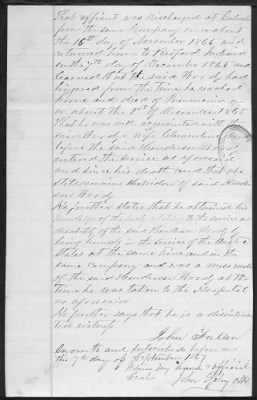 That affiant was discharged at Columbus
from the same Company on or about
the 15th day of November 1865 and
returned home to Bedford Indiana
on the 7th day of December 1865 and
learned that the said Woody had
lingered from the time he reached
home and died of Pneumonia on
or about the 1st of December 1865
That he was not acquainted with the
said Woody's wife Clementine
before the said Henderson Woody
entered the service as aforesaid
and since his death and that she
Still remains the widow of said Hender
son Woody.
He further States that he obtained his
knowledge of the facts relating to the service and
disability of the said Henderson Woody by
being himself in the service of the United
States at the same time and in the
same company and was a mess mate
of the said Henderson Woody at the
time he was taken to the Hospital
as aforesaid
He further says that he is a disinteres
ted witness
John
Sworn to and subscribed before me
this 7th day of September 1867
Witness my hand & official
Seal
John Riley